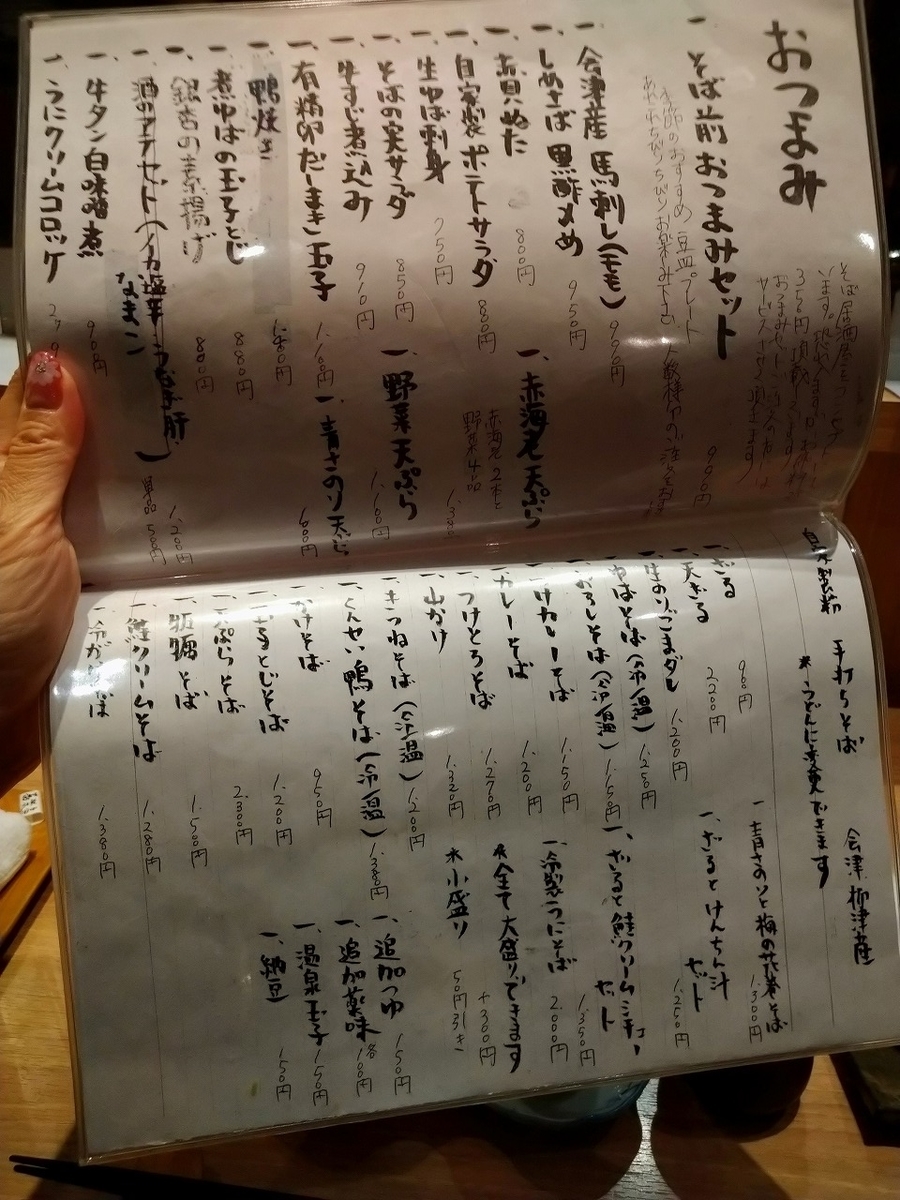 おつまみ
一、そば前おつまみセット 990円
一、会津産 馬刺し(モモ) 990円
一、しめさば 黒酢〆め 950円
一、赤貝ぬた 800円
一、自家製 ポテトサラダ 880円
一、生ゆば刺身 750円
一、そばの実サラダ 850円
一、牛すじ煮込み 910円
一、有精卵だしまき玉子 1,160円
一、鴨焼き
一、煮ゆばの玉子とじ 880円
一、銀杏の素揚げ 800円
一、酒のアテセット 1,200円
なまこ
単品 500円
一、牛タン白味噌煮 900円
一、うにクリームコロッケ
一、赤海老天ぷら
赤海老2本と
野菜4品
一、野菜天ぷら 1,160円
一、青さのり天ぷら 600円
自家製粉 手打ちそば 会津柳津産
*うどんに変更できます
一、ざる 960円
一、天ざる 2,200円
一、生のりごまダレ 1,200円
ゆばそば(冷・温) 1,250円
おろしそば(冷・温) 1,150円
つけカレーそば 1,150円
一、カレーそば 1,200円
一、つけとろそば 1,270円
一、山かけ 1,320円
一、きつねそば(冷・温) 1,200円
一、くんせい鴨そば(冷・温) 1,380円
かけそば 950円
とじそば 1,200円
天ぷらそば 2,300円
牡蠣そば 1,500円
一、鮭クリームそば 1,280円
1,380円
一、青さのりと梅の花巻そば 1,300円
一、ざるとけんちん汁セット 1,250円
一、ざると鮭クリームシチューセット 1,350円
一、冷製うにそば 2,000円
*全て大盛りできます +300円
*小盛り 50円引き
一、追加つゆ 150円
一、追加薬味 各100円
一、温泉玉子 150円
一、納豆 150円